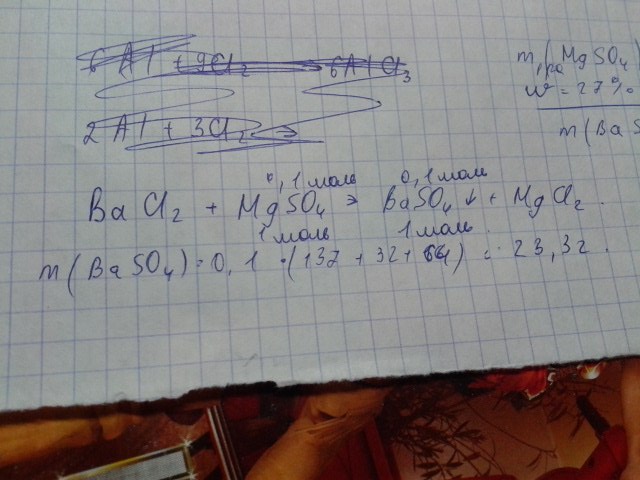 6Al + 9Cl₂ 6AlCl₃
2Al + 3Cl₂ →
m р-ра MgSO₄
w = 27%
m(BaS
0,1 моль 0,1 моль
BaCl₂ + MgSO₄ → BaSO₄↓ + MgCl₂.
1 моль 1 моль.
m(BaSO₄) = 0,1 · (137 + 32 + 64) = 23,3г.